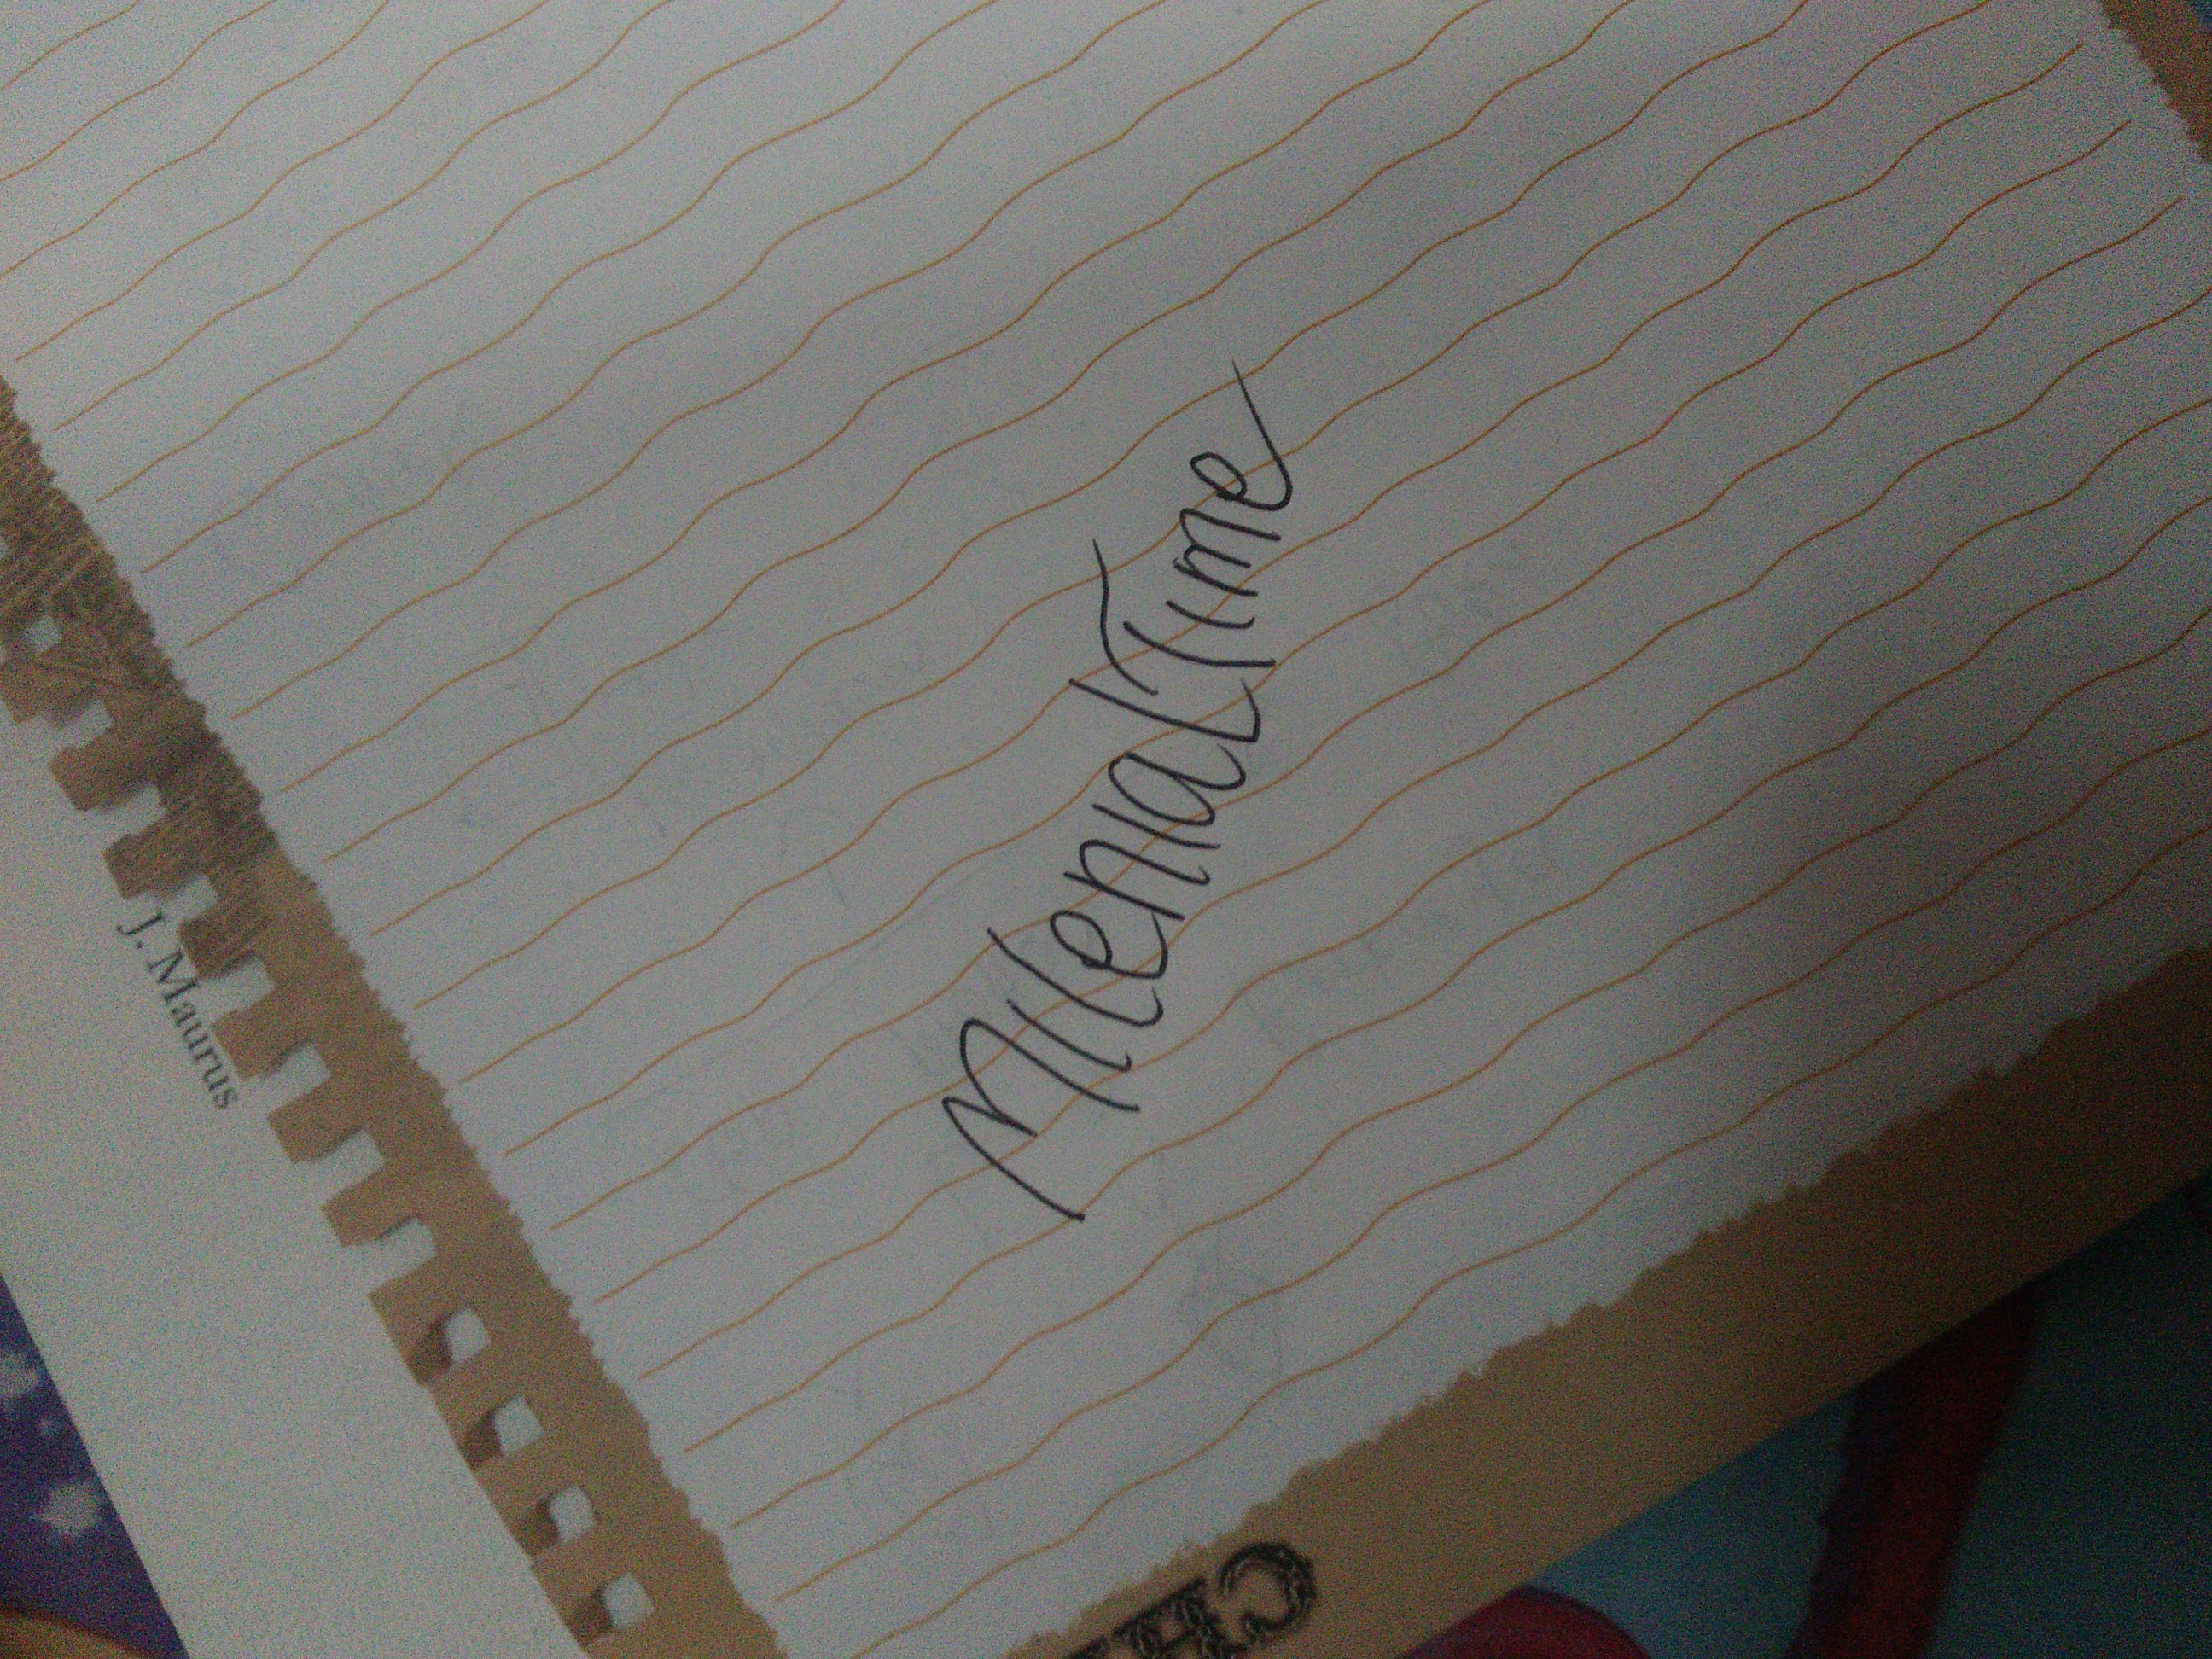 MilenialTime
J. Maurus